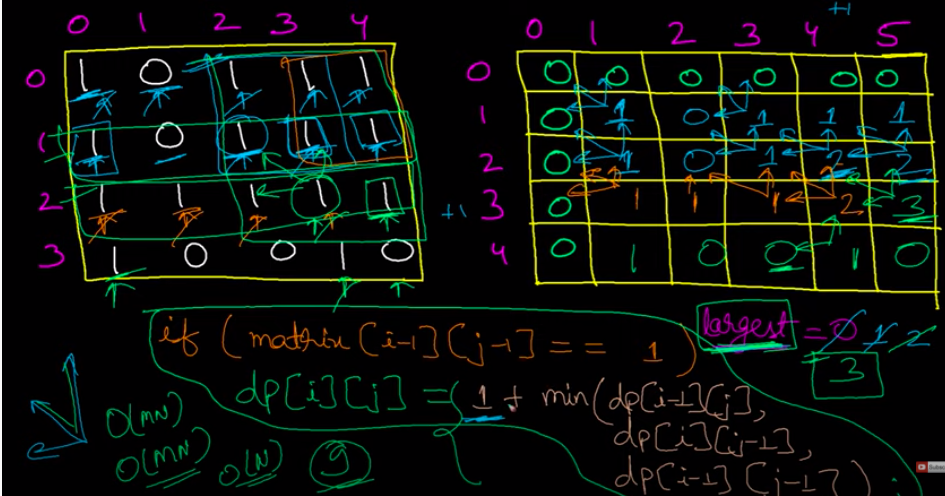 0 1 2 3 4
0 1 0 1 1 1
1 1 0 1 1 1
2 1 1 1 1 1
3 1 0 0 1 0
+1
0 1 2 3 4 5
0 0 0 0 0 0 0
1 0 1 0 1 1 1
2 0 1 0 1 2 2
+1 3 0 1 1 1 2 3
4 0 1 0 0 1 0
if (matrix[i-1][j-1] == 1)
largest = 0 1 2
3
dp[i][j] = (1 + min(dp[i-1][j],
dp[i][j-1],
dp[i-1][j-1])
O(MN)
O(MN) O(N) 9